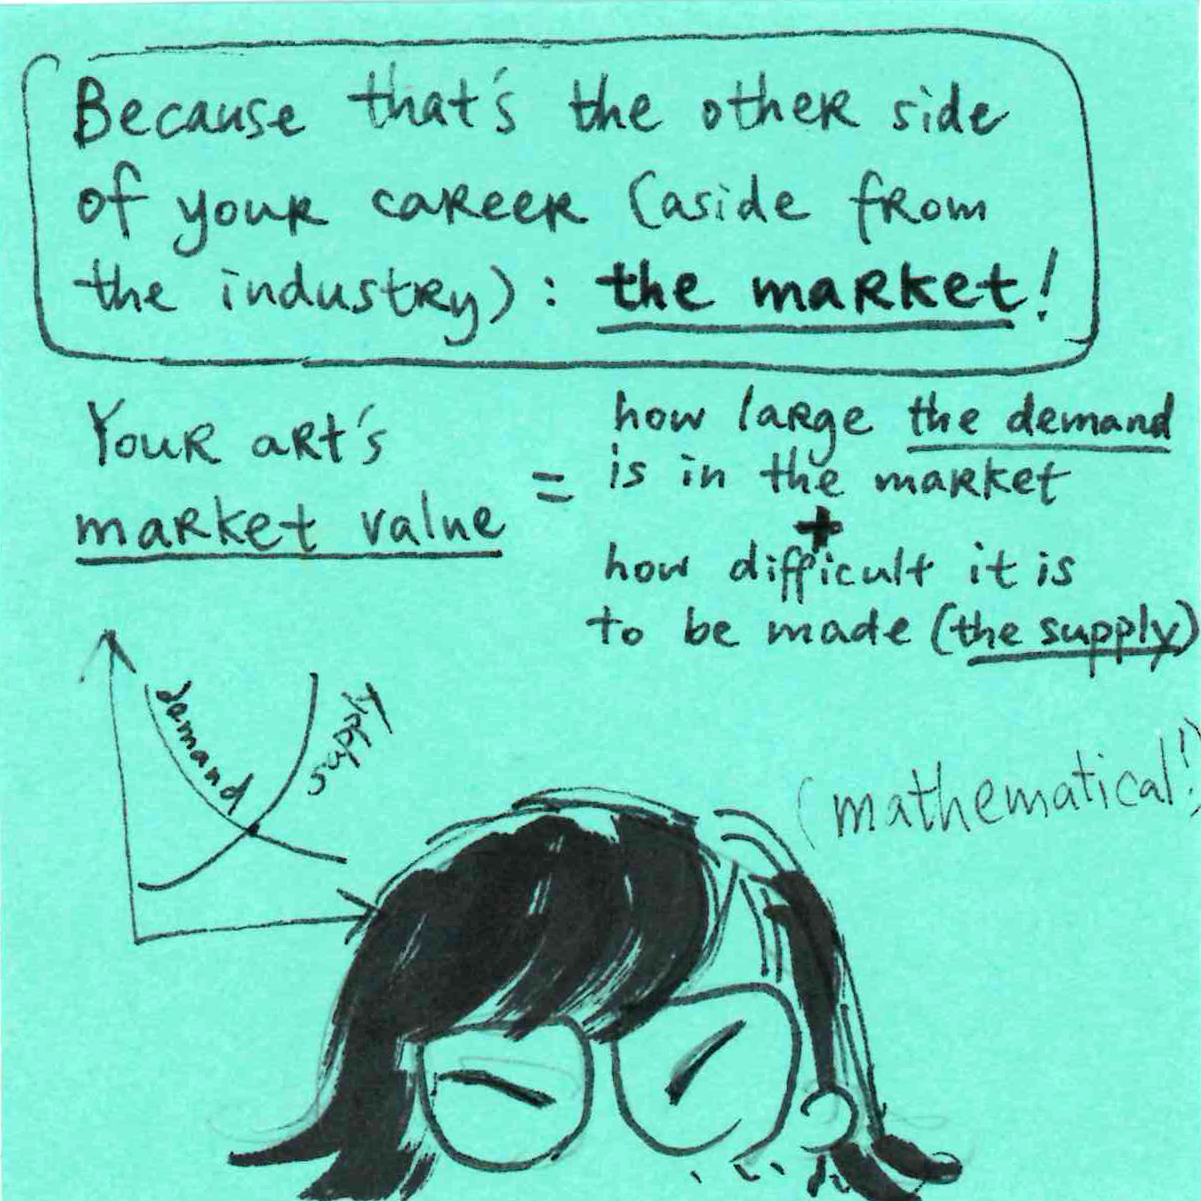 Because that's the other side
of your career (aside from
the industry): the market!
Your art's
market value
=
how large the demand
is in the market
+
how difficult it is
to be made (the supply)
demand
supply
(mathematical!)